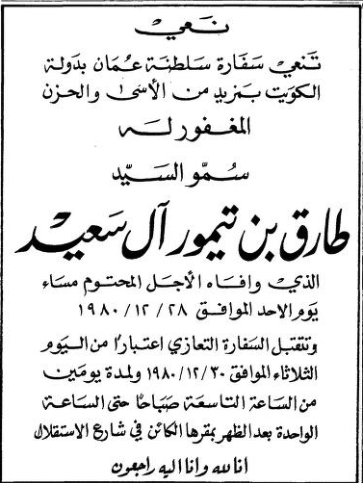 نعي
تنعي سفارة سلطنة عمان بدولة
الكويت بمزيد من الأسى والحزن
المغفور له
سمو السيد
طارق بن تيمور آل سعيد
الذي وافاه الأجل المحتوم مساء
يوم الاحد الموافق ٢٨ / ١٢ / ١٩٨٠
وتتقبل السفارة التعازي اعتبارا من اليوم
الثلاثاء الموافق ٣٠ / ١٢ / ١٩٨٠ ولمدة يومين
من الساعة التاسعة صباحا حتى الساعة
الواحدة بعد الظهر بمقرها الكائن في شارع الاستقلال
انا لله وانا اليه راجعون